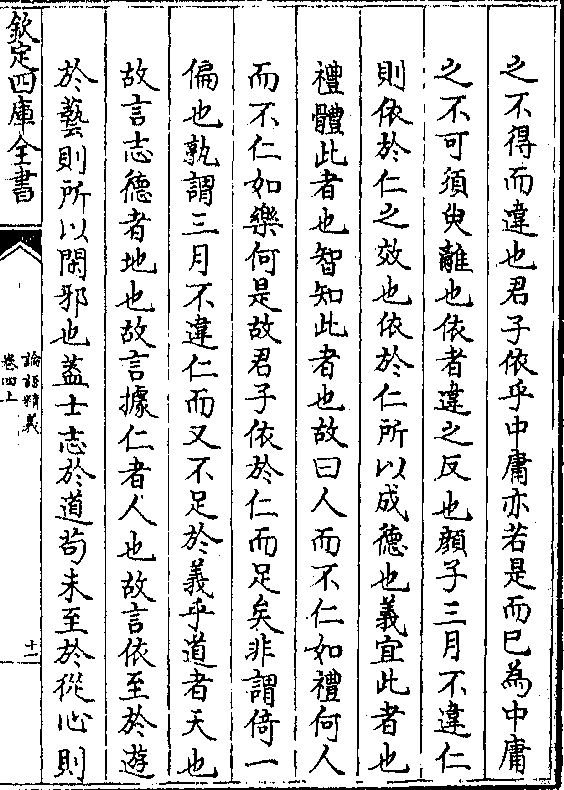 之不得而違也君子依乎中庸亦若是而已為中庸
之不可須臾離也依者違之反也顔子三月不違仁
則依於仁之效也依於仁所以成德也義宜此者也
禮體此者也智知此者也故曰人而不仁如禮何人
而不仁如樂何是故君子依於仁而足矣非謂倚一
偏也孰謂三月不違仁而又不足於義乎道者天也
故言志德者地也故言據仁者人也故言依至於遊
於藝則所以閑邪也蓋士志於道茍未至於從心則
欽定四庫全書
論語精義
卷四上
十一